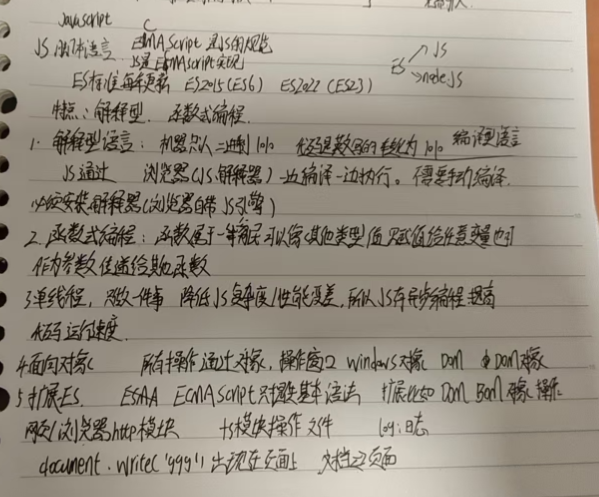 Javascript C
JS 脚本语言 ECMAScript 是JS的规范
JS是ECMAScript实现
ES → JS
→ nodeJS
ES标准每年更新 ES2015(ES6) ES2022(ES23)
特点:解释型、函数式编程.
1. 解释型语言: 机器只认二进制 1010 编译型语言
JS通过 浏览器(JS解释器)一边编译一边执行。不需要手动编译.
必须安装解释器(浏览器自带JS引擎)
2. 函数式编程:函数属于一等公民可以像其他类型值 赋值给任意变量也可
作为参数传递给其他函数
3 单线程, 只做一件事 降低JS复杂度 性能变差,所以JS有异步编程提高
代码运行速度.
4.面向对象 所有操作通过对象,操作窗口 Windows对象 Dom Dom对象
5 扩展ES. ECMAScript只提供基本语法 扩展比如 Dom Bom对象 操作
网页/浏览器 http模块 fs模块操作文件 log:日志
document.write('999') 出现在页面上 文档页面